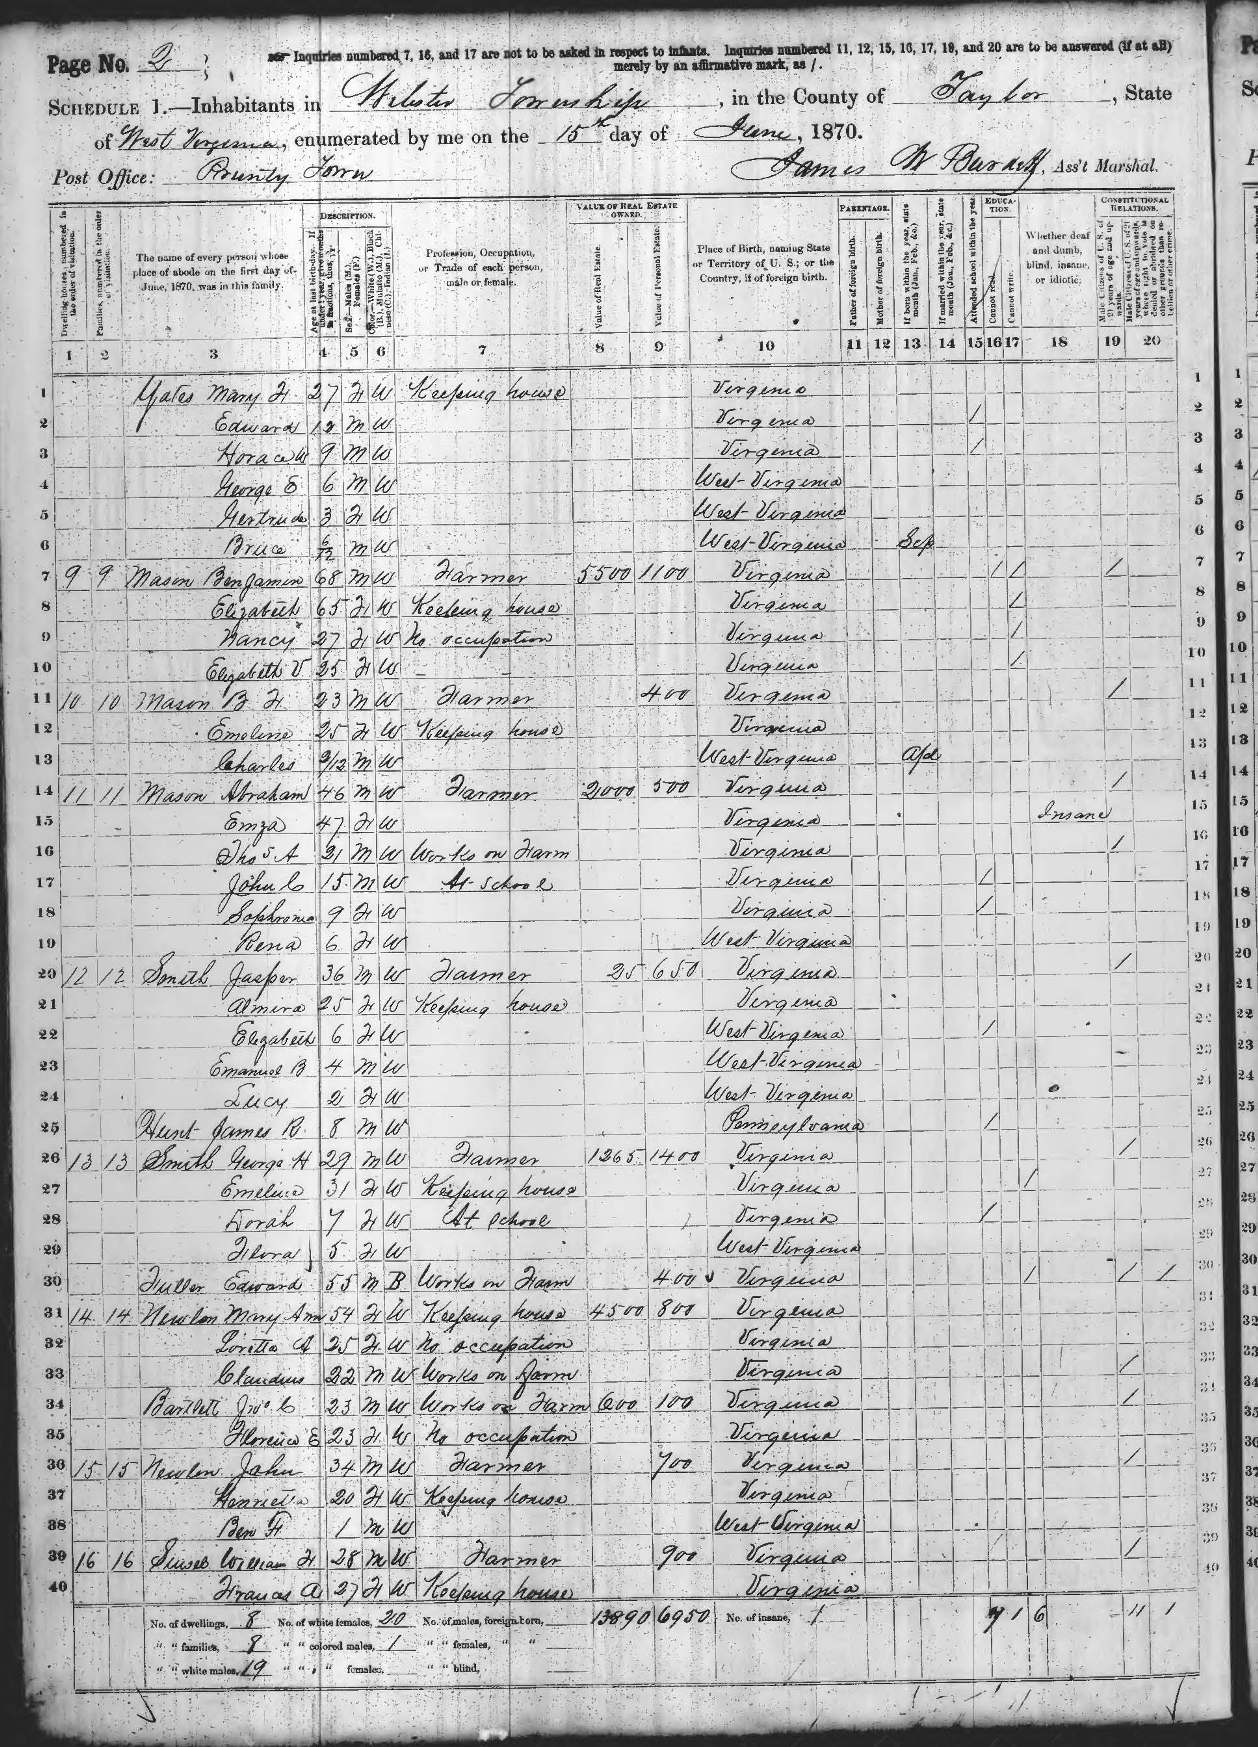 Page No. 2
Inquiries numbered 7, 16, and 17 are not to be asked in respect to infants. Inquiries numbered 11, 12, 15, 16, 17, 19, and 20 are to be answered (if at all)
merely by an affirmative mark, as /.
SCHEDULE 1.—Inhabitants in Webster Township, in the County of Taylor, State
of West Virginia, enumerated by me on the 15th day of June, 1870.
Post Office: Prunty Town
James W Burdett, Ass't Marshal.
Dwelling houses, numbered in the order of visitation.
Families, numbered in the order of visitation.
The name of every person whose place of abode on the first day of June, 1870, was in this family.
DESCRIPTION.
Age at last birth-day. If under 1 year, give months in fractions, thus, 3/12
Sex.—Males (M.), Females (F.)
Color.—White (W.), Black (B.), Mulatto (M.), Chinese (C.), Indian (I.)
Profession, Occupation, or Trade of each person, male or female.
VALUE OF REAL ESTATE OWNED.
Value of Real Estate.
Value of Personal Estate.
Place of Birth, naming State or Territory of U. S.; or the Country, if of foreign birth.
PARENTAGE.
Father of foreign birth.
Mother of foreign birth.
If born within the year, state month (Jan., Feb., &c.)
If married within the year, state month (Jan., Feb., &c.)
EDUCATION.
Attended school within the year.
Cannot read.
Cannot write.
Whether deaf and dumb, blind, insane, or idiotic.
CONSTITUTIONAL RELATIONS.
Male Citizens of U. S. of 21 years of age and upwards.
Male Citizens of U. S. of 21 years of age and upwards, whose right to vote is denied or abridged on other grounds than rebellion or other crime.
1 2 3 4 5 6 7 8 9 10 11 12 13 14 15 16 17 18 19 20
1 Yates Mary F. 27 F W Keeping house Virginia 1
2 Edward 12 M W Virginia / 2
3 Horace W 9 M W Virginia / 3
4 George E 6 M W West-Virginia 4
5 Gertrude 3 F W West-Virginia 5
6 Bruce 6/12 M W West-Virginia Sep 6
7 9 9 Mason Benjamin 68 M W Farmer 5500 1100 Virginia / / / 7
8 Elizabeth 65 F W Keeping house Virginia / 8
9 Nancy 27 F W No occupation Virginia / 9
10 Elizabeth V 25 F W Virginia / 10
11 10 10 Mason B F. 23 M W Farmer 400 Virginia / 11
12 Emeline 25 F W Keeping house Virginia 12
13 Charles 2/12 M W West-Virginia Apl 13
14 11 11 Mason Abraham 46 M W Farmer 2000 500 Virginia / 14
15 Emza 47 F W Virginia Insane 15
16 Thos A 21 M W Works on Farm Virginia / 16
17 John C 15 M W At School Virginia / 17
18 Sophronia 9 F W Virginia / 18
19 Rena 6 F W West-Virginia 19
20 12 12 Smith Jasper 36 M W Farmer 25 650 Virginia / 20
21 Almira 25 F W Keeping house Virginia 21
22 Elizabeth 6 F W West-Virginia / 22
23 Emanuel B 4 M W West-Virginia 23
24 Lucy 2 F W West-Virginia 24
25 Hunt James R. 8 M W Pennsylvania / 25
26 13 13 Smith George H 29 M W Farmer 1265 1400 Virginia / 26
27 Emeline 31 F W Keeping house Virginia / 27
28 Dorah 7 F W At School Virginia / 28
29 Flora 5 F W West-Virginia 29
30 Fuller Edward 55 M B Works on Farm 400 Virginia / / / 30
31 14 14 Newlon Mary Ann 54 F W Keeping house 4500 800 Virginia 31
32 Loretta A 25 F W No occupation Virginia 32
33 Claudius 22 M W Works on farm Virginia / 33
34 Bartlett Jno C 23 M W Works on Farm 600 100 Virginia / 34
35 Florence E 23 F W No occupation Virginia 35
36 15 15 Newlon John 34 M W Farmer 700 Virginia / 36
37 Henrietta 20 F W Keeping house Virginia 37
38 Ben F 1 M W West-Virginia 38
39 16 16 Sinsel William F 28 M W Farmer 900 Virginia / 39
40 Frances A 27 F W Keeping house Virginia 40
No. of dwellings, 8 No. of white females, 20 No. of males, foreign born, 13890 6950 No. of insane, 1 7 1 6 11 1
" " families, 8 " " colored males, 1 " " females, " "
" " white males, 19 " " " females, " " blind,